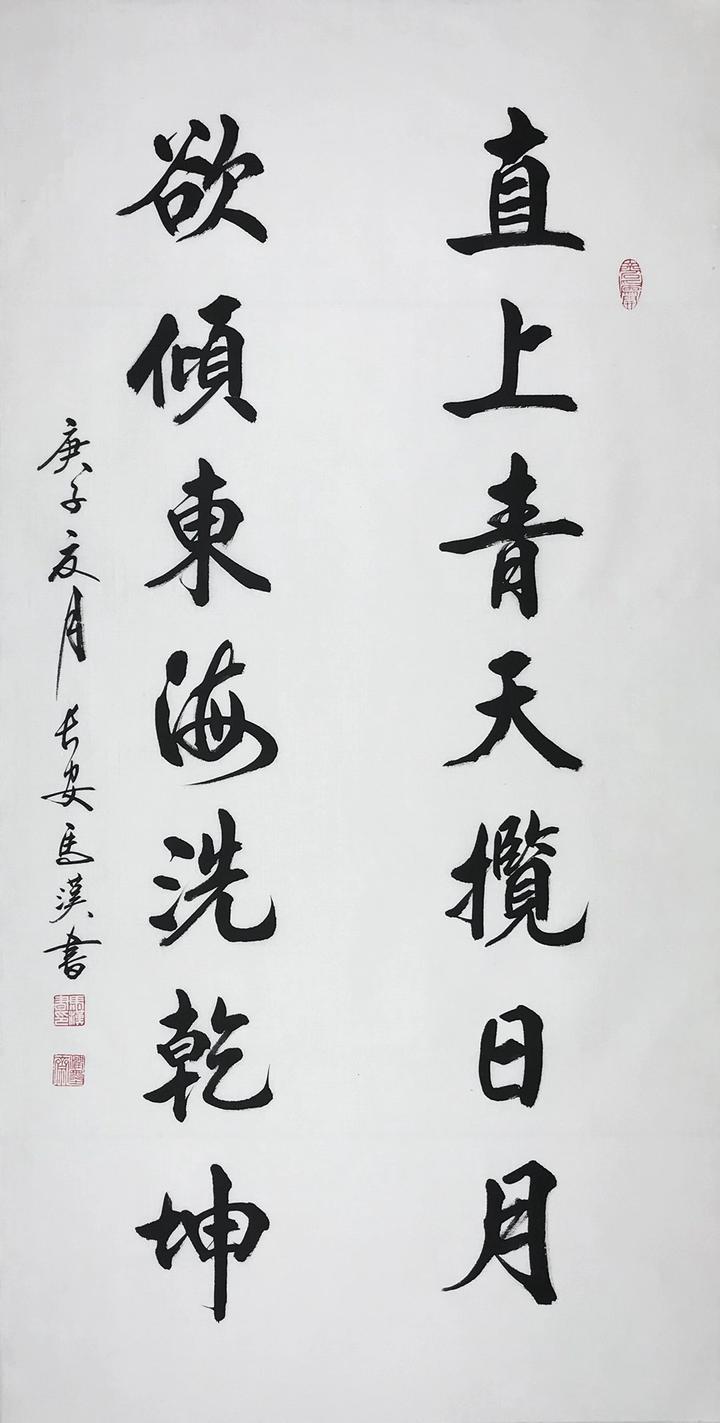 直上青天攬日月
欲傾東海洗乾坤
庚子夏月長安馬漢書